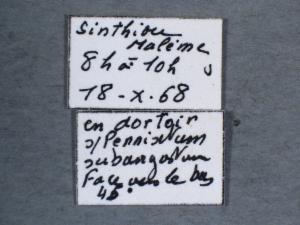 Sinthiou
Malème
8h à 10h
18-X-68
en dortoir
s/Pennisetum
subangustum
Face vers le bas